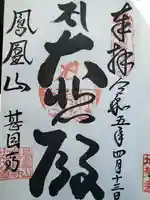 奉拝 令和五年四月十三日
大悲殿
鳳凰山 甚目寺